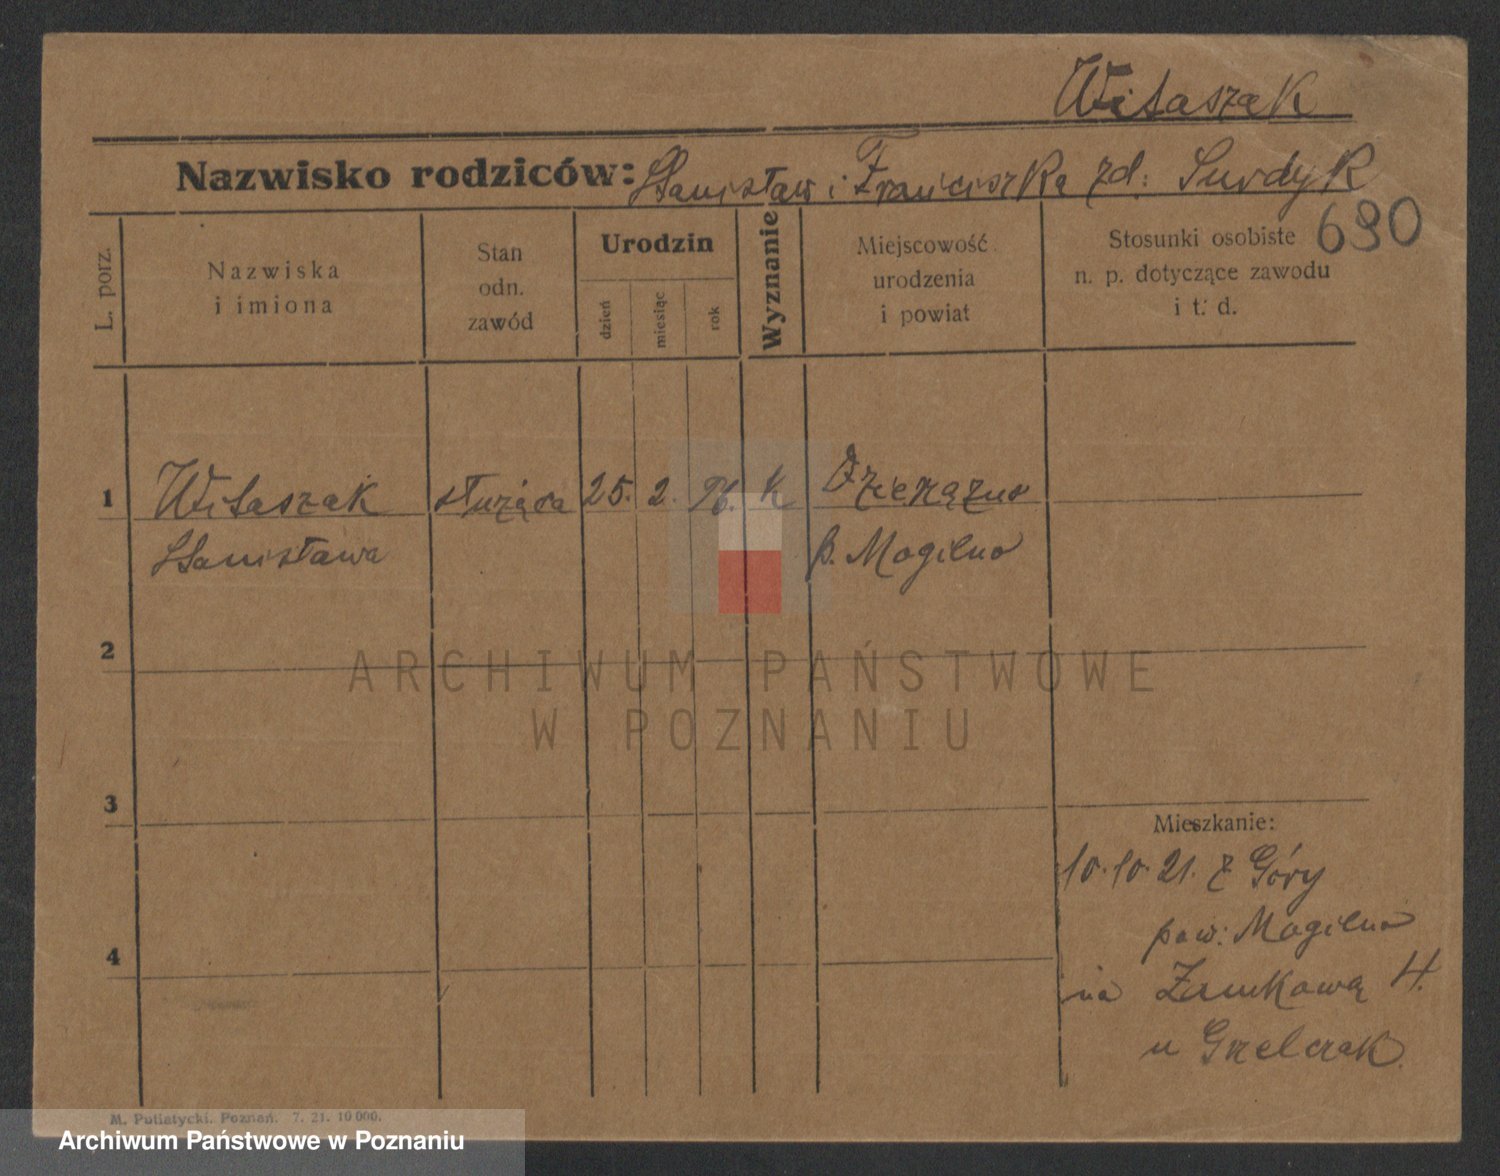 Witaszak
Nazwisko rodziców: Stanisław i Franciszka zd: Surdyk
690
L. porz.
Nazwiska
i imiona
Stan
odn.
zawód
Urodzin
dzień
miesiąc
rok
Wyznanie
Miejscowość
urodzenia
i powiat
Stosunki osobiste
n. p. dotyczące zawodu
i t. d.
1 Witaszak służąca 25. 2. 96. k
Stanisława p. Mogilno
2
ARCHIWUM PAŃSTWOWE
W POZNANIU
3
Mieszkanie:
10.10.21. z Góry
pow: Mogilno
4
na Zamkową 4.
u Grzelczak.
M. Putiatycki. Poznań. 7. 21. 10 000.
Archiwum Państwowe w Poznaniu